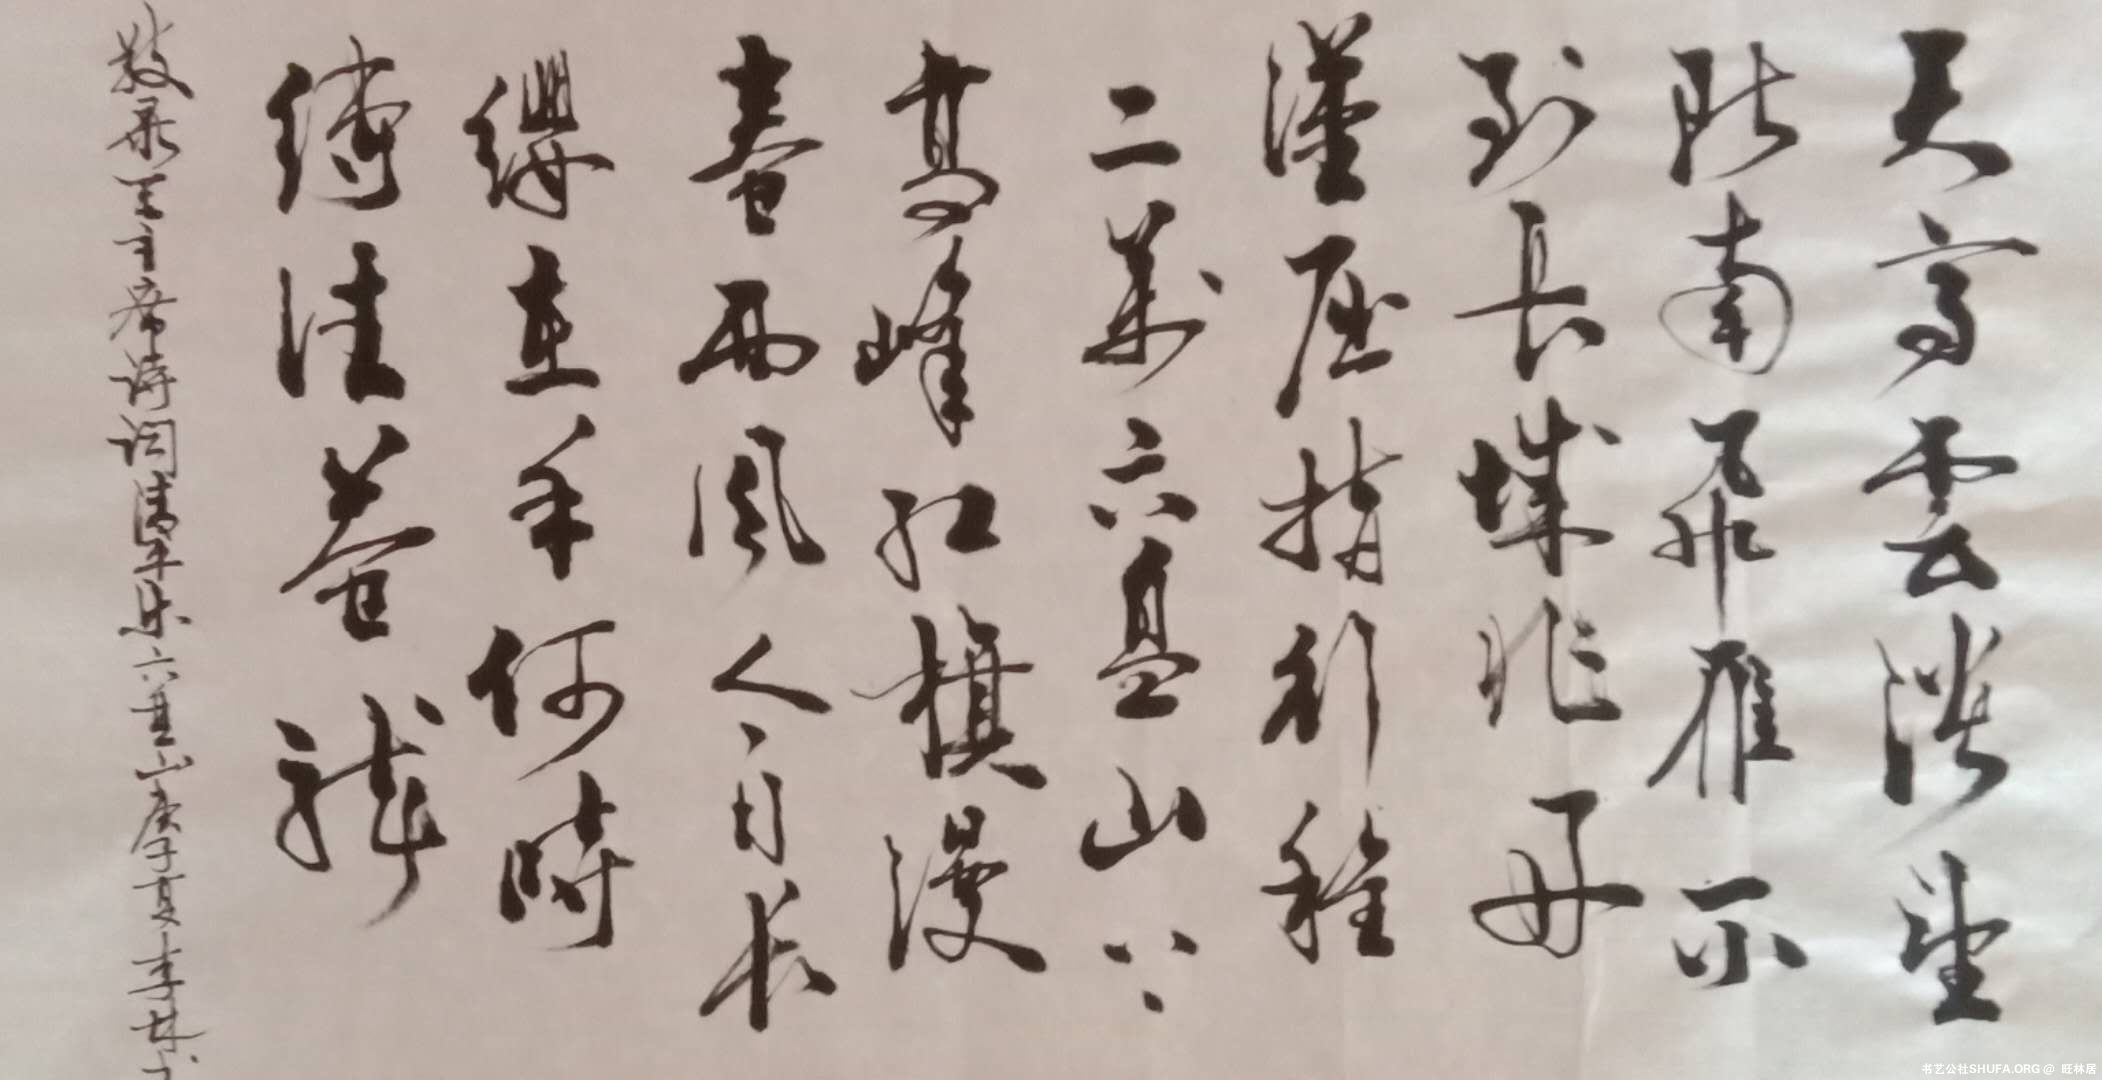 天高雲淡望
断南飛雁不
到长城非好
漢屈指行程
二萬六盘山上
高峰红旗漫
卷西风今日长
缨在手何時
缚住苍龍
敬录毛主席诗词清平乐六盘山庚子夏李林书
书艺公社SHUFA.ORG @ 旺林居